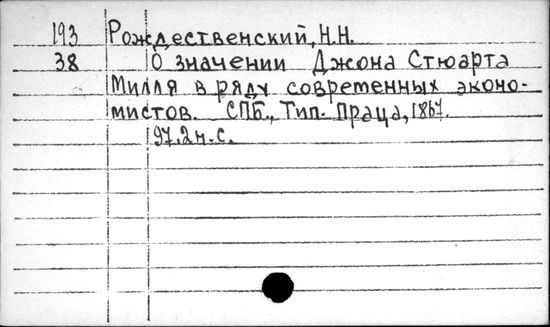 193 Рождественский, Н.Н.
38 О значении Джона Стюарта
Милля в ряду современных эконо-
мистов. СПБ., Тип. Праца, 1867.
97, 2н.с.